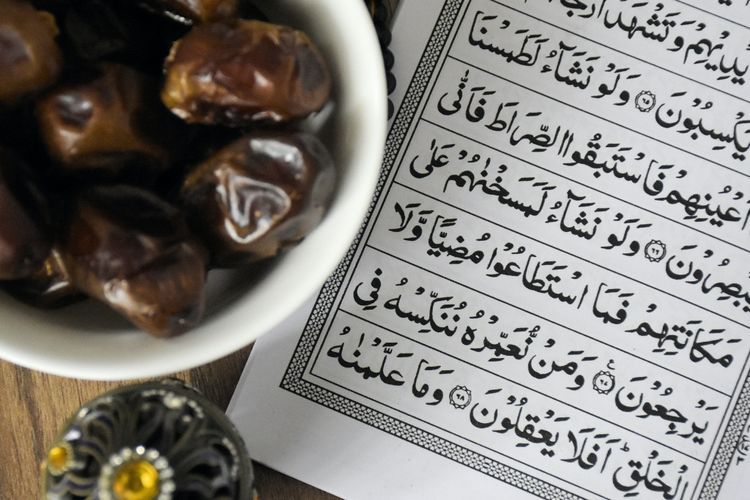 يْدِيْهِمْ وَتَشْهَدُ
يَكْسِبُوْنَ ﴿٦٥﴾ وَلَوْ نَشَآءُ لَطَمَسْنَا
اَعْيُنِهِمْ فَاسْتَبَقُوا الصِّرَاطَ فَاَنّٰى
يُبْصِرُوْنَ ﴿٦٦﴾ وَلَوْ نَشَآءُ لَمَسَخْنٰهُمْ عَلٰى
مَكَانَتِهِمْ فَمَا اسْتَطَاعُوْا مُضِيًّا وَّلَا
يَرْجِعُوْنَ ﴿٦٧﴾ۧ وَمَنْ نُّعَمِّرْهُ نُنَكِّسْهُ فِى
الْخَلْقِۗ اَفَلَا يَعْقِلُوْنَ ﴿٦٨﴾ وَمَا عَلَّمْنٰهُ